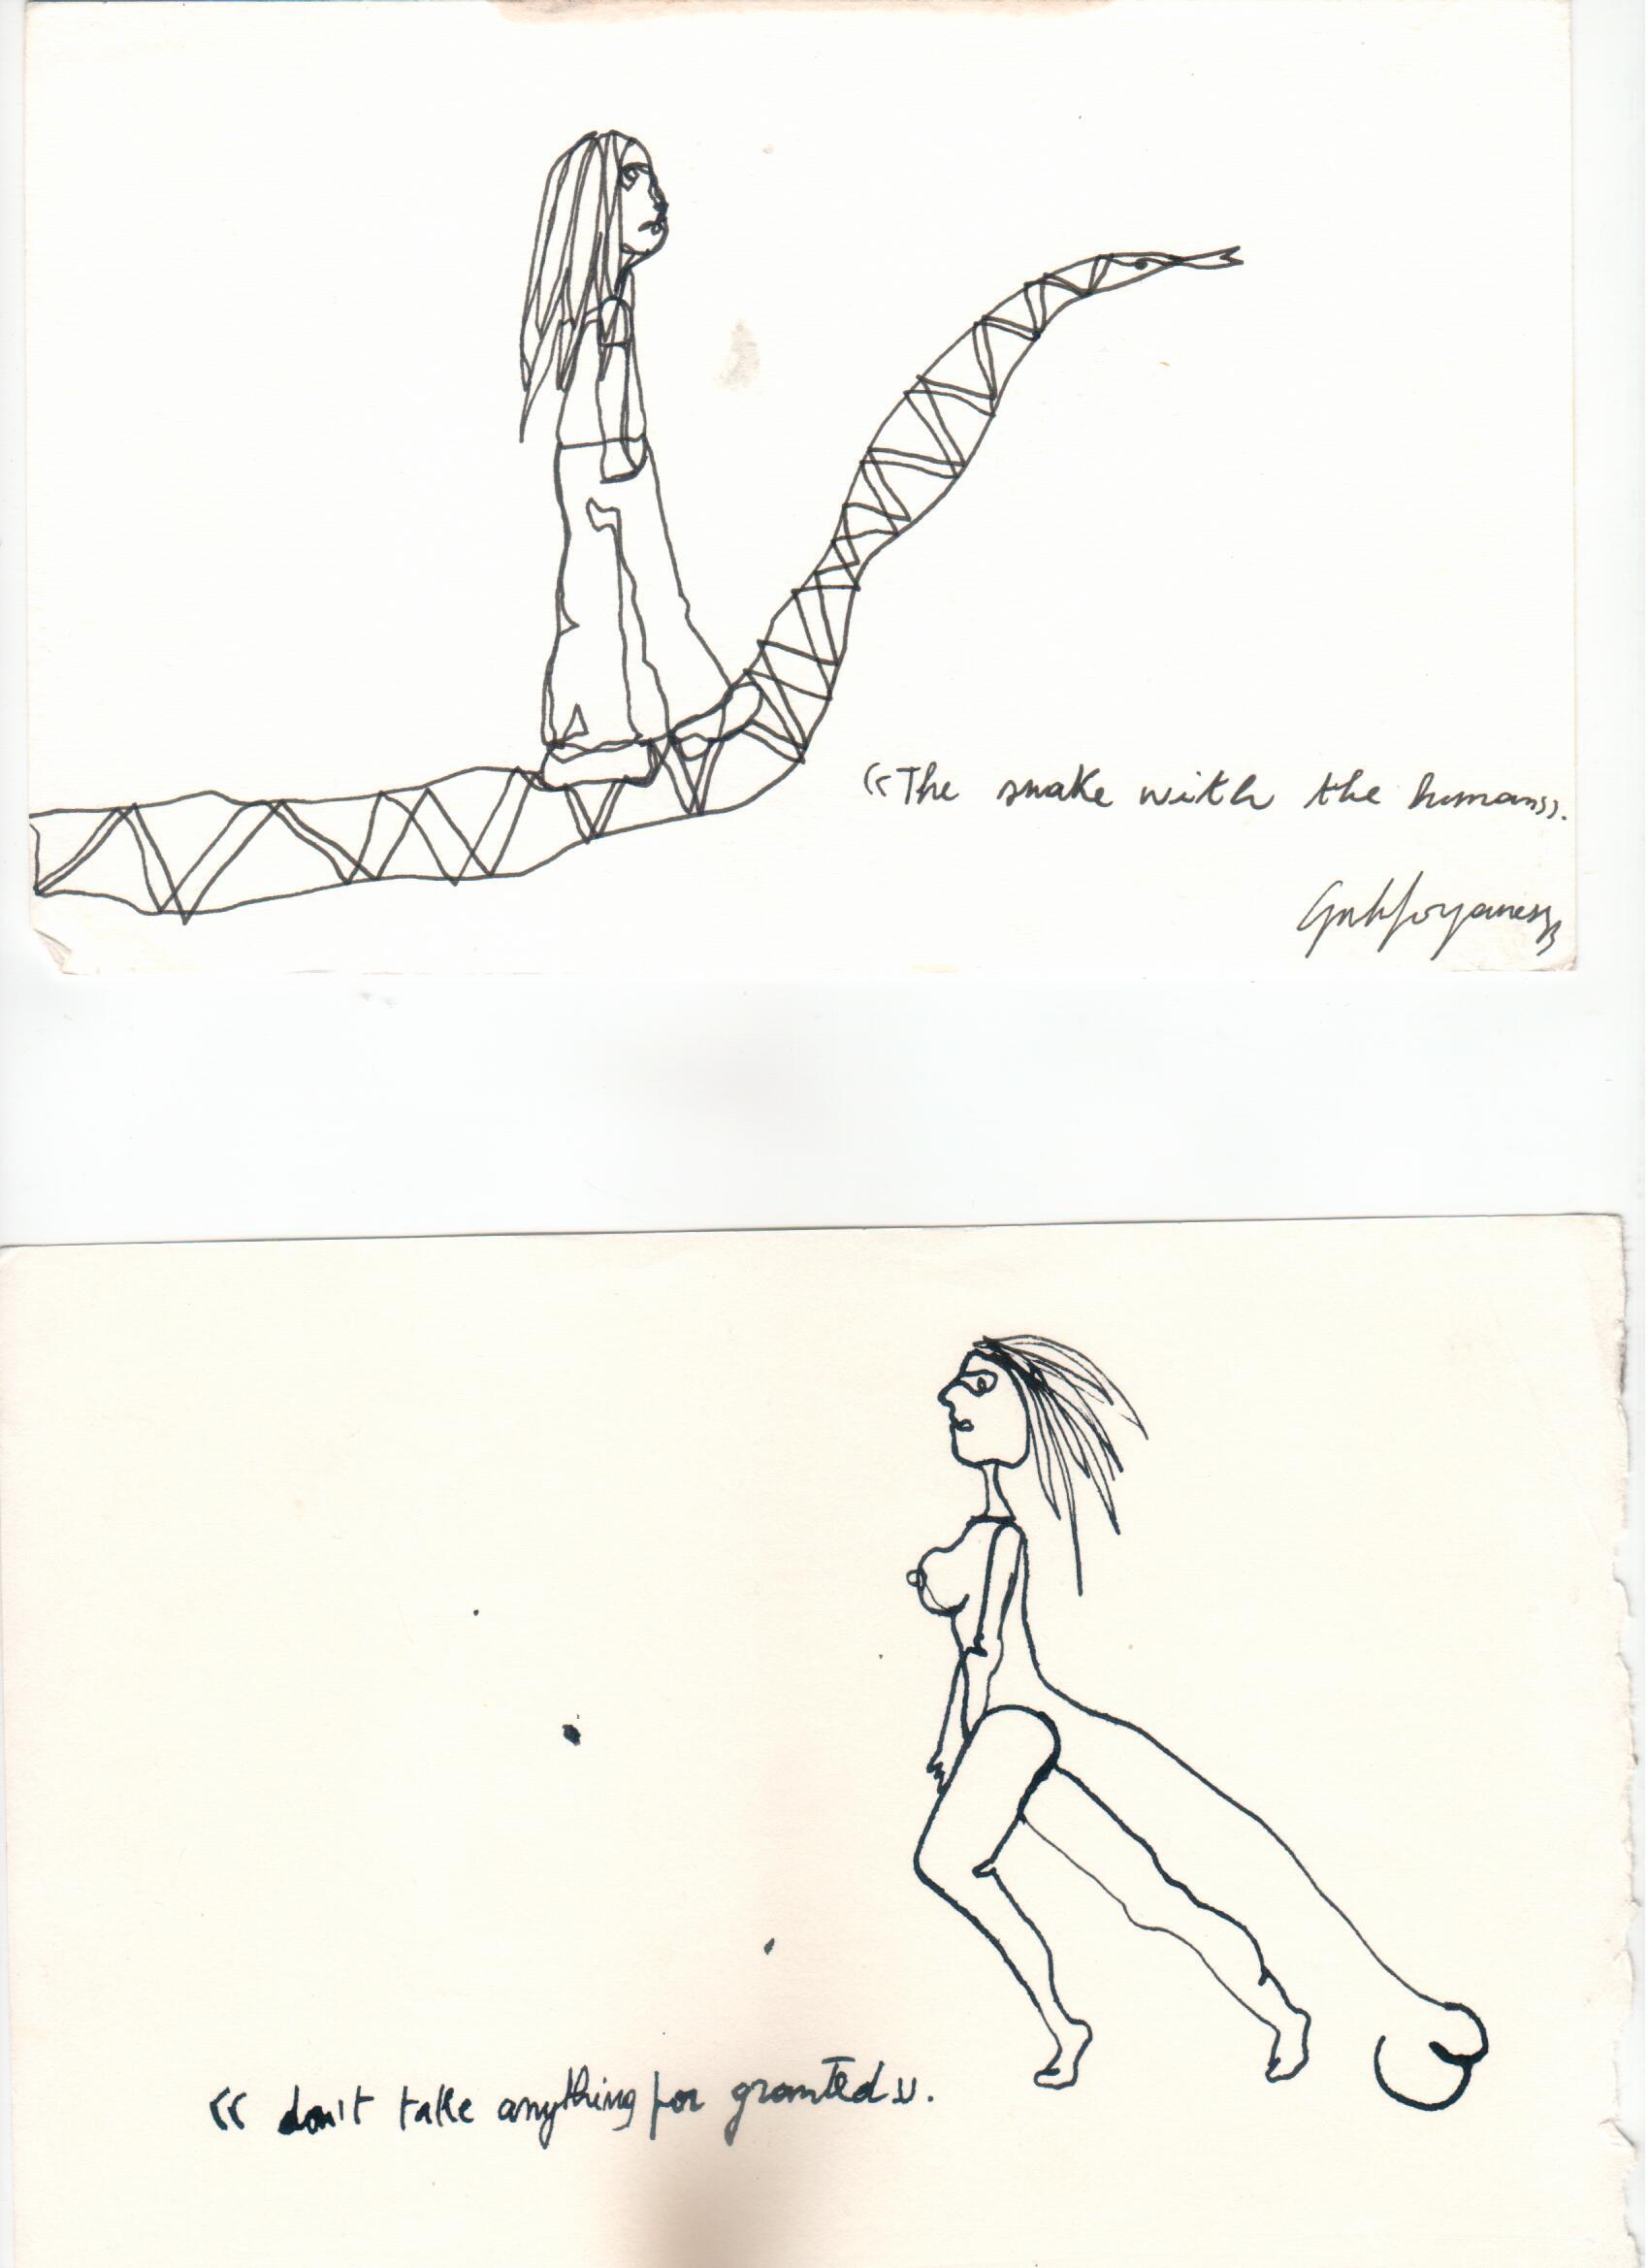 «The snake with the human».
« don't take anything for granted ».